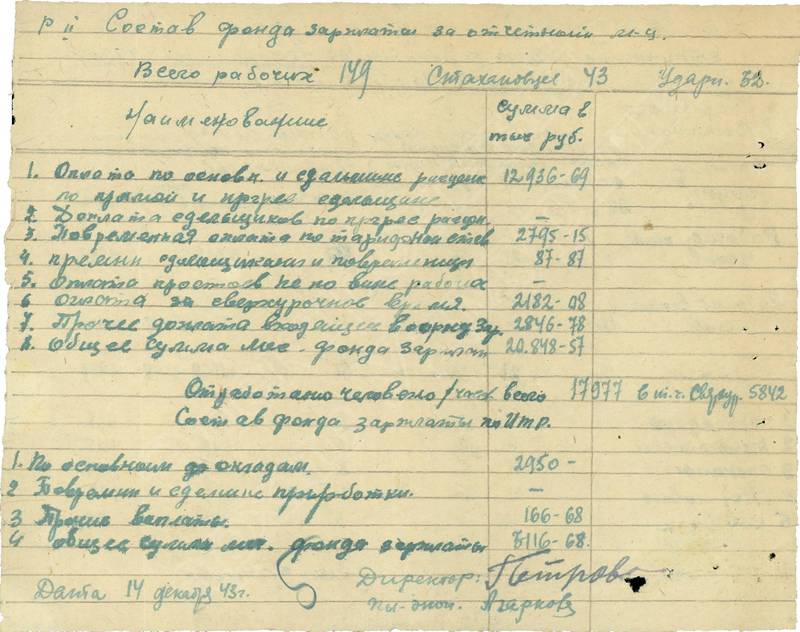 Р II Состав фонда зарплаты за отчетный м-ц.
Всего рабочих 149 Стахановцев 43 Ударн. 32.
Наименование
Сумма в
тыс руб.
1. Оплата по основн. и сдельщине расценк 12936-69
по прямой и прогрес сдельщине
2. Доплата сдельщиков по прогрес расцен. —
3. Повременная оплата по тарифной став 2795-15
4. премии сдельщикам и повременщи 87-87
5. Оплата простоев не по вине рабоча —
6 оплата за сверхурочное время. 2182-08
7. Прочее доплата входящее в фонд Зр. 2846-78
8. Общее сумма мес. фонда зарплат 20.848-57
Отработано человеко/час. всего 17977 в т.ч. сверхур. 5842
Состав фонда зарплаты по Итр.
1. По основным окладам. 2950 -
2 Повремен и сдельно приработки. —
3 Прочие выплаты. 166-68
4 общее сумма мес. фонда зарплаты 3116-68.
Дата 14 декабря 43г.
Директор: Петрова
Агаркова